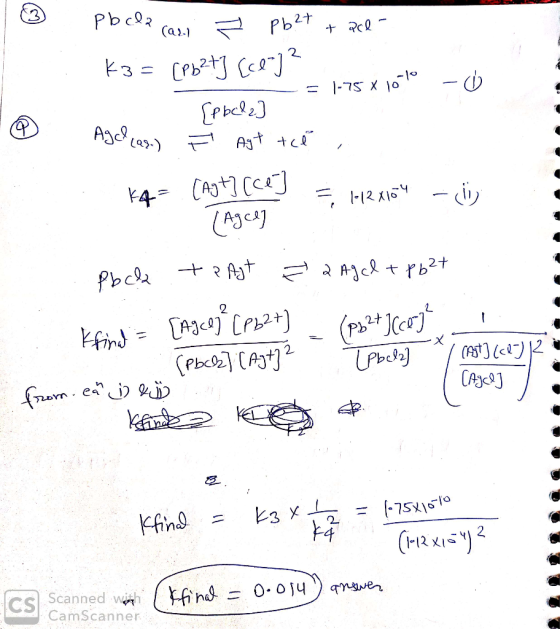 ③ PbCl2 (as.) ⇌ Pb2+ + 2Cl-
K3 = [Pb2+] [Cl-]^2 / [PbCl2] = 1.75 x 10^-10 - (i)
④ AgCl (aq.) ⇌ Ag+ + Cl-,
K4 = [Ag+] [Cl-] / [AgCl] = 1.12 x 10^-4 - (ii)
PbCl2 + 2 Ag+ ⇌ 2 AgCl + Pb2+
Kfind = [AgCl]^2 [Pb2+] / [PbCl2] [Ag+]^2 = [Pb2+] [Cl-]^2 / [PbCl2] x 1 / ([Ag+] [Cl-] / [AgCl])^2
from. eqn i) & ii)
Kfind = K3 x 1 / K4^2 = 1.75x10^-10 / (1.12 x10^-4)^2
Kfind = 0.014 answer
CS Scanned with
CamScanner